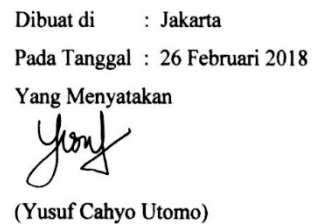 Dibuat di : Jakarta
Pada Tanggal : 26 Februari 2018
Yang Menyatakan
(Yusuf Cahyo Utomo)